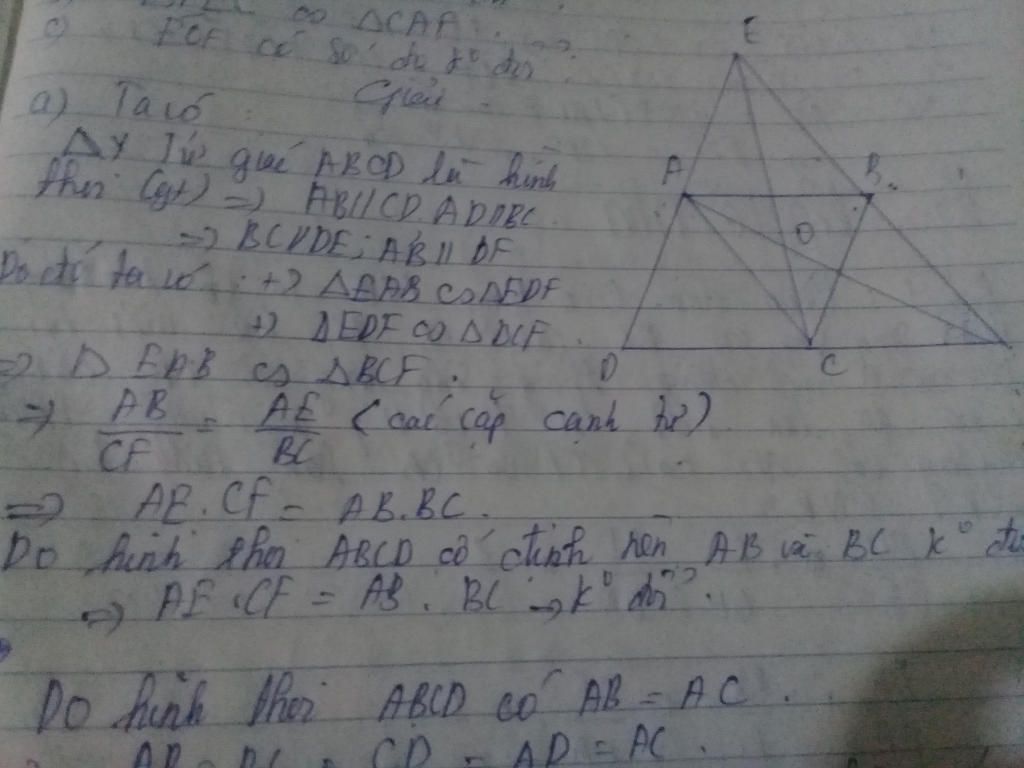 c) ECF có số đo k° đổi
Giải
a) Ta có
Tứ giác ABCD là hình
thoi (gt) => AB//CD, AD//BC
=> BC//DE; AB//DF
Do đó ta có: +) ΔEAB ∽ ΔEDF
+) ΔEDF ∽ ΔBCF
=> Δ EAB ∽ ΔBCF.
=> AB/CF = AE/BC (các cặp cạnh tứ)
=> AE.CF = AB.BC.
Do hình thoi ABCD cố định nên AB và BC k° đổi
=> AE.CF = AB.BC → k° đổi.
Do hình thoi ABCD có AB = AC.
AB = BC = CD = AD = AC.
E
A
B
O
D
C